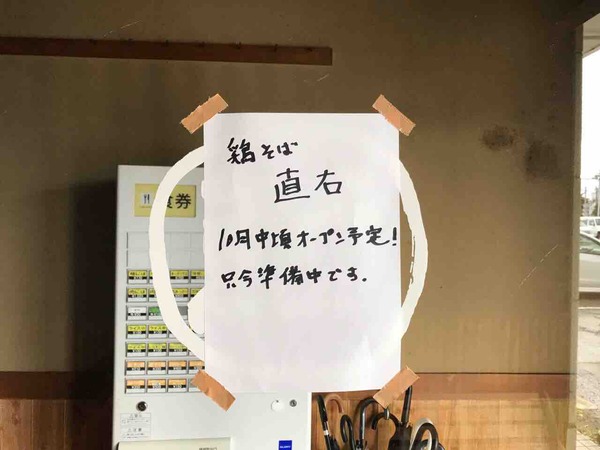 鶏そば
直右
10月中頃オープン予定!
只今準備中です.
食券